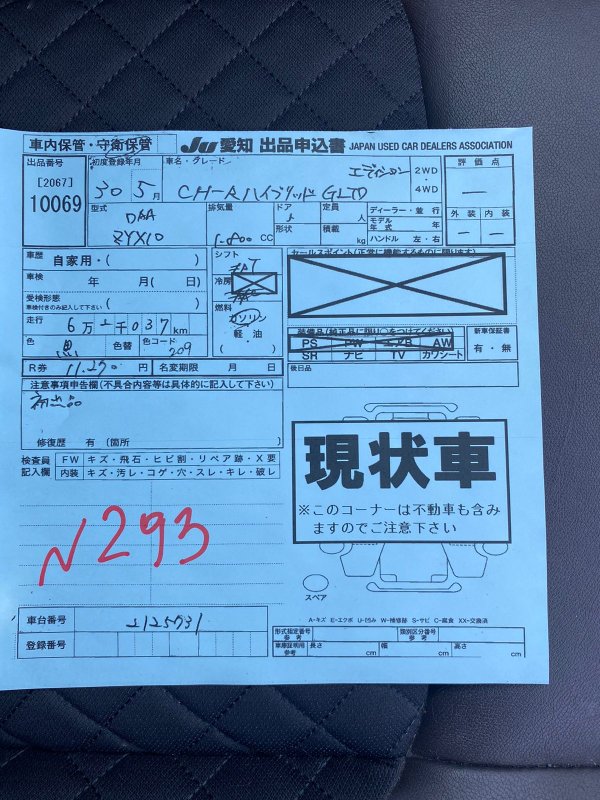 車内保管・守衛保管
JU 愛知 出品申込書 JAPAN USED CAR DEALERS ASSOCIATION
出品番号 初度登録年月 車名・グレード 2WD・4WD 評価点
[2067]
10069
30 5月 C-HR ハイブリッド G LTD エディション —
型式 排気量 ドア 定員 人 ディーラー・並行 外装 内装
形状 積載 kg モデル年式 年
DAA
ZYX10 1.800 CC ハンドル 左・右 — —
車歴 自家用・( ) シフト セールスポイント(正常に機能するものに限ります)
車検 年 月( 日) 冷房
受検形態 ( )
車検付きのみ記入して下さい
燃料
ガソリン
軽・油
( )
走行 6万 千037km
色 黒 色替 色コード 209
装備品(純正品に限り○をつけてください) 新車保証書
PS PW エアB AW 有・無
SR ナビ TV カワシート
R券 11.250円 名変期限 月 日 後日品
注意事項申告欄(不具合内容等は具体的に記入して下さい)
初出品
修復歴 有(箇所 )
検査員記入欄 FW キズ・飛石・ヒビ割・リペア跡・X要
内装 キズ・汚レ・コゲ・穴・スレ・キレ・破レ
現状車
※このコーナーは不動車も含み
ますのでご注意下さい
N293
スペア
A-キズ E-エクボ U-凹み W-補修跡 S-サビ C-腐食 XX-交換済
車台番号 2125731
登録番号
形式指定番号 参考 類別区分番号 参考
車庫証明用 参考 長さ cm 幅 cm 高さ cm